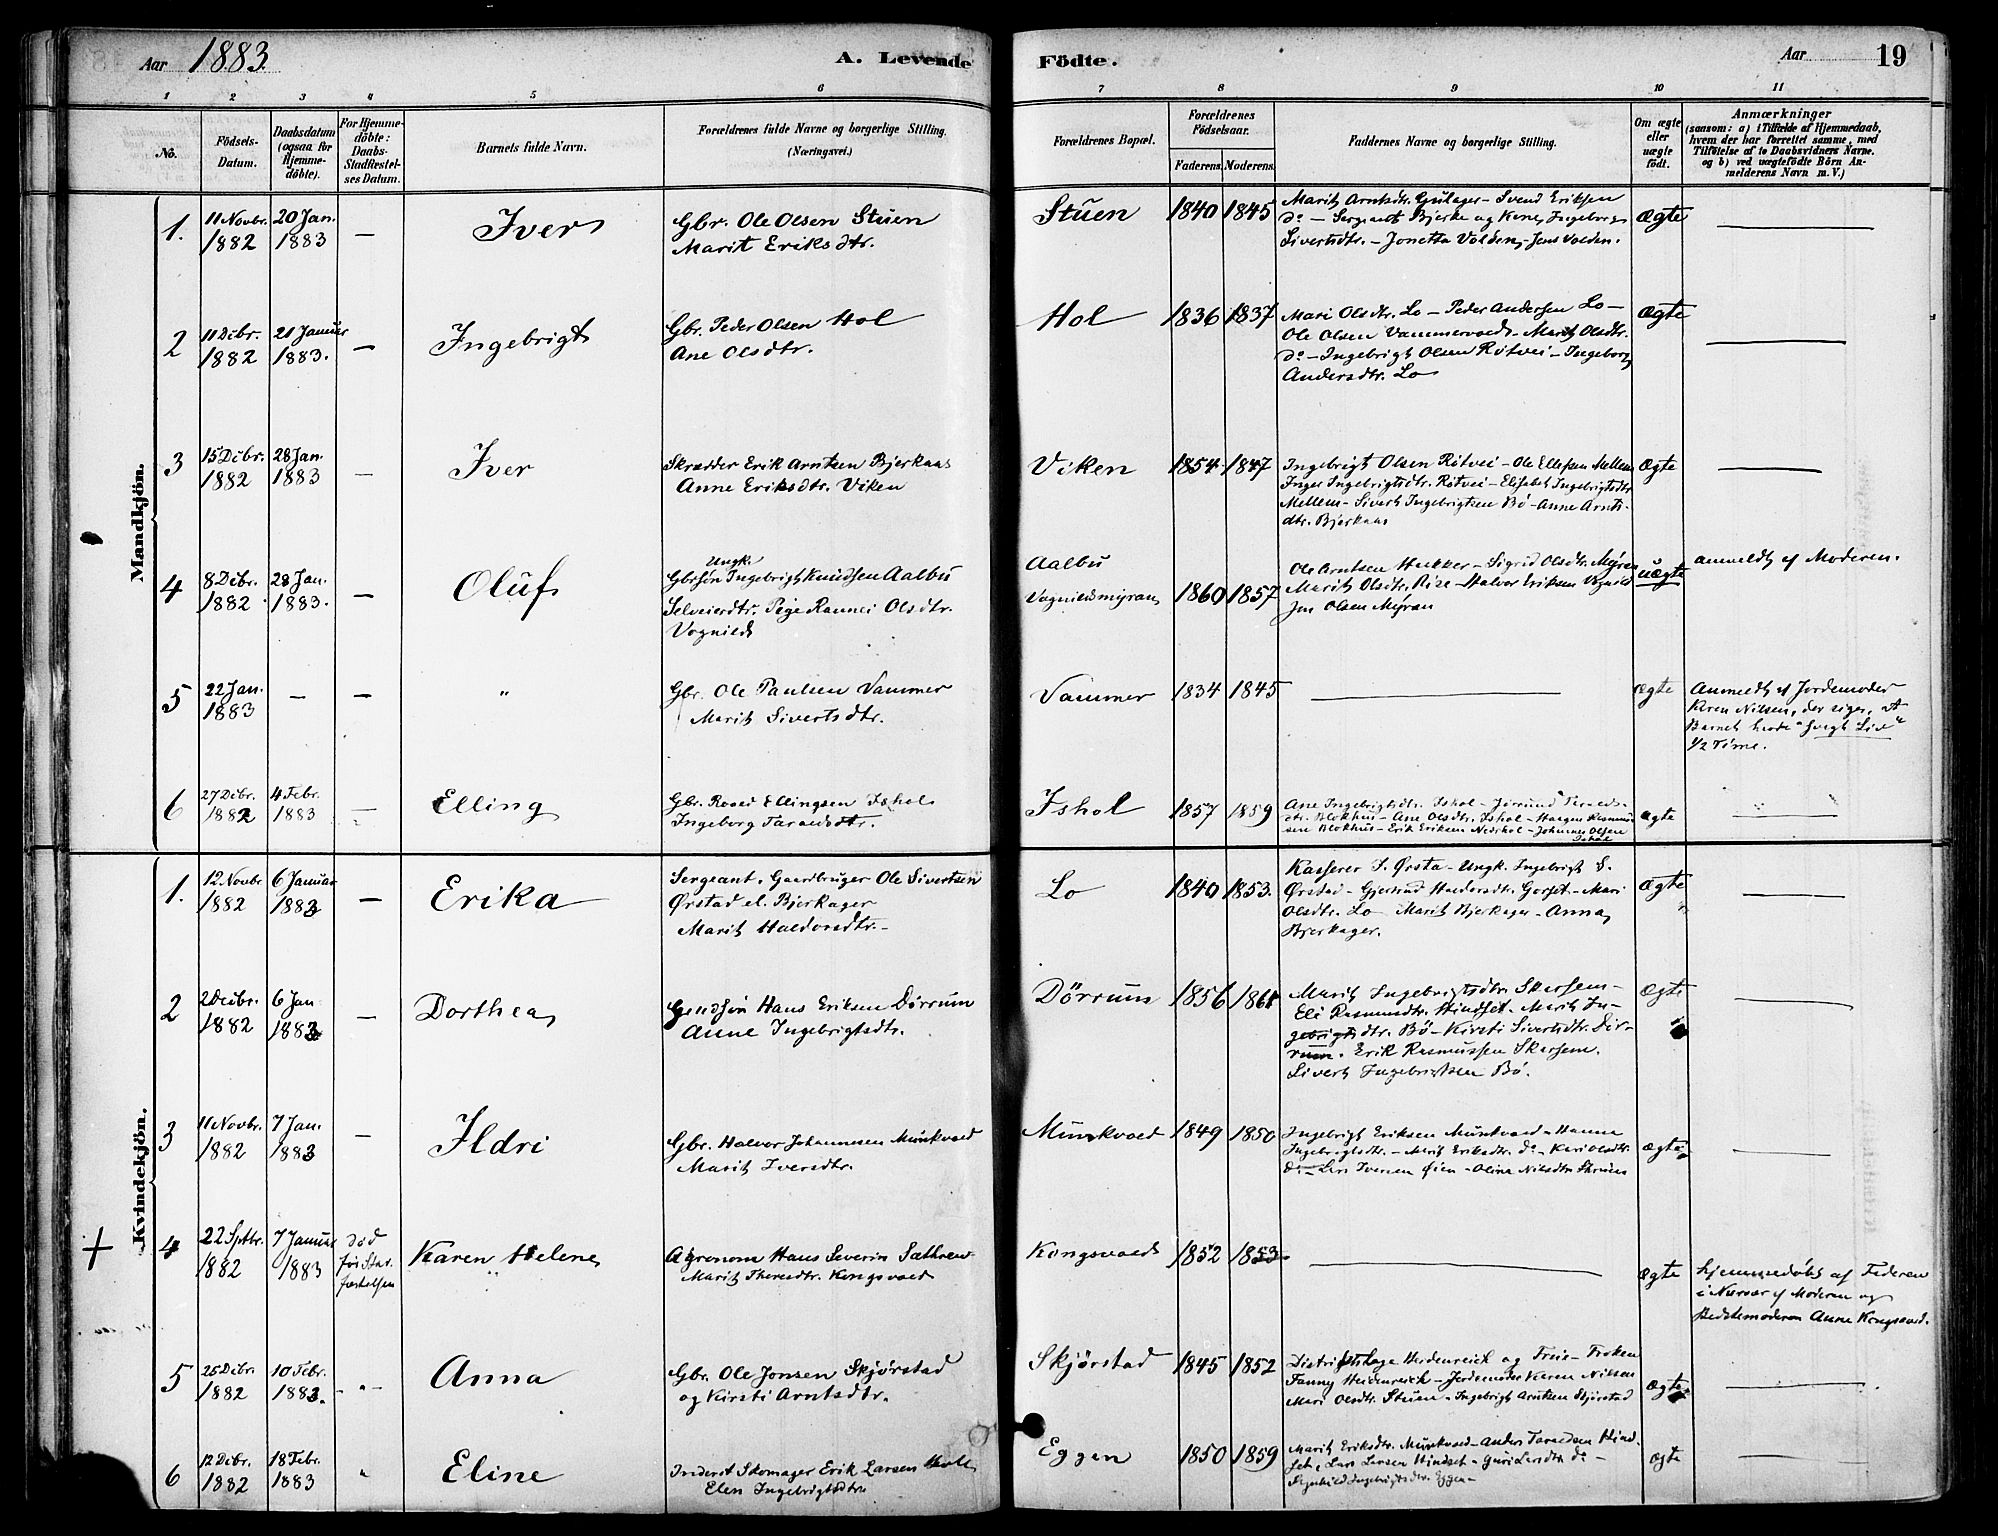 Aar 1883.
A. Levende
Födte.
Aar
19
1 2 3 4 5 6
7 8 9 10 11
No.
Födsels-
Datum.
Daabsdatum
(ogsaa for
Hjemme-
döbte).
For Hjemme-
döbte:
Daabs-
Stadfæstel-
ses Datum.
Barnets fulde Navn.
Forældrenes fulde Navne og borgerlige Stilling.
(Næringsvei.)
Forældrenes Bopæl.
Forældrenes
Födselsaar.
Faderens.
Moderens.
Faddernes Navne og borgerlige Stilling.
Om ægte
eller
uægte
födt.
Anmærkninger
(saasom: a) i Tilfælde af Hjemmedaab,
hvem der har forrettet samme, med
Tilföielse af to Daabsvidners Navne.
og b) ved uægtefödte Börn An-
melderens Navn m. V.)
Mandkjön.
1.
11 Novbr.
1882
20 Jan.
1883
—
Iver
Gbr. Ole Olsen Stuen
Marit Eriksdtr.
Stuen
1840
1845
Marit Arntsdtr. Gulager - Svend Eriksen
do - Sergeant Bjerke og Kone Ingeborg
Sivertsdtr. - Jonetta Volden, Jens Volden.
ægte
2
11 Dcbr.
1882
21 Januar
1883.
—
Ingebrigt
Gbr. Peder Olsen Hol
Ane Olsdtr.
Hol
1836
1837
Mari Olsdtr. Lo - Peder Andersen Lo -
Ole Olsen Vammervold - Marit Olsdtr.
do - Ingebrigt Olsen Rötvei - Ingeborg
Andersdtr. Lo
ægte
3
15 Dcbr.
1882
28 Jan.
1883
—
Iver
Skrædder Erik Arntsen Bjerkaas
Anne Eriksdtr. Viken
Viken
1854
1847
Ingebrigt Olsen Rötvei - Ole Ellefsen Mellem
Inger Ingebrigtsdtr. Rötvei - Elisabet Ingebrigtsdtr.
Mellem - Sivert Ingebrigtsen Bö - Anne Arnts-
dtr. Bjerkaas
ægte
4
8 Dcbr.
1882
28 Jan.
1883.
—
Oluf
Ungk.
Gbrsön Ingebrigt Knudsen Aalbu
Selveierdtr. Pige Rannei Olsdtr.
Vognild
Aalbu
Vognildsmyran
1860
1857
Ole Arntsen Hukker - Sigrid Olsdtr. Myran
Marit Olsdtr. Rise - Halvor Eriksen Vognild
Jon Olsen Myran
uægte
anmeldt af Moderen.
5
22 Jan.
1883
—
—
"
Gbr. Ole Paulsen Vammer
Marit Sivertsdtr.
Vammer
1834
1845
ægte
Anmeldt af Jordemoder
Karen Nilsen, der siger, at
Barnet havde "svagt Liv"
1/2 Time.
6
27 Dcbr.
1882
4 Febr.
1883
—
Elling
Gbr. Roald Ellingsen Ishol
Ingeborg Taraldsdtr.
Ishol
1857
1859
Ane Ingebrigtsdtr. Ishol - Jorund Taralds-
dtr. Blokhus - Ane Olsdtr. Ishol - Haagen Rasmus-
sen Blokhus - Erik Eriksen Nedrhol - Johannes Olsen
Ishol
ægte
Kvindekjön.
1.
12 Novbr
1882
6 Januar
1883
—
Erika
Sergeant, Gaardbruger Ole Sivertsen
Ørstad el. Bjerkager
Marit Haldorsdtr. -
Lo
1840
1853.
Kasserer S. Ørsta - Ungk. Ingebrigt S.
Ørstad - Gjertrud Haldorsdtr. Gorset - Mari
Olsdtr. Lo Marit Bjerkager - Anna
Bjerkager.
ægte
2
2 Dcbr.
1882
6 Jan
1883
—
Dorthea
Hans Eriksen Dörrum
Anne Ingebrigtsdtr.
Dörrum
1856
Marit Ingebrigtsdtr. Skarsem -
Eli Rasmusdtr. Hindset - Marit In-
gebrigtsdtr. Bö - Kirsti Sivertsdtr. Dör-
rum. Erik Rasmussen Skarsem.
Sivert Ingebrigtsen Bö.
ægte
3
11 Novbr.
1882
7 Jan.
1883
—
Ildri
Gbr. Halvor Johannesen Munkvold
Marit Iversdtr.
Munkvold
1849
1850
Ingebrigt Eriksen Munkvold - Hanna
Ingebrigtsdtr. - Marit Eriksdtr. do - Kari Olsdtr.
do - Lars Iversen Øien - Oline Nilsdtr.
ægte
+
4
22 Sptbr.
1882
7 Januar
1883
död
för Stad-
fæstelsen
Karen Helene
Agronom Hans Severin Sæthren
Marit Kongsvold
Kongsvold
1852
1853
ægte
Hjemmedöbt af Faderen
i Nærvær af Moderen og
Bedstemoderen Anne Kongsvold.
5
25 Dcbr.
1882
10 Febr.
1883.
- " -
Anna
Gbr. Ole Jonsen Skjørstad
og Kirsti Arntsdtr.
Skjørstad
1845
1852
Distriktslæge Heidenreich og Frue - Frøken
Fanny Heidenreich - Jordemoder Karen Nilsen
Mari Olsdtr. Stuen - Ingebrigt Arntsen Skjørstad
ægte
6
12 Dcbr.
1882
18 Febr.
1883
"
Eline
Inderst Skomager Erik Larsen
Elen Ingebrigtsdtr.
Eggen
1850
1859
Marit Eriksdtr. Munkvold - Anders Taraldsen Hind-
set, Lars Larsen Hindset - Guri Larsdtr. do -
Ragnhild Ingebrigtsdtr. Eggen -
ægte